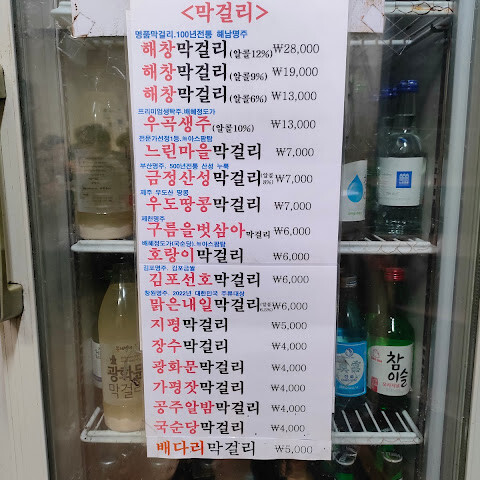 <막걸리>
명품막걸리.100년전통 해남명주
해창막걸리(알콜12%) ₩28,000
해창막걸리(알콜9%) ₩19,000
해창막걸리(알콜6%) ₩13,000
프리미엄생탁주.배혜정도가
우곡생주(알콜10%) ₩13,000
전문가선정1등.無아스팜탐
느린마을막걸리 ₩7,000
부산명주. 500년전통 산성 누룩
금정산성막걸리(알콜8%) ₩7,000
제주 우도산 땅콩
우도땅콩막걸리 ₩7,000
제천명주
구름을벗삼아막걸리 ₩6,000
배혜정도가(국순당).無아스팜탐
호랑이막걸리 ₩6,000
김포명주. 김포금쌀
김포선호막걸리 ₩6,000
창원명주. 2022년 대한민국 주류대상
맑은내일막걸리 ₩6,000
지평막걸리 ₩5,000
장수막걸리 ₩4,000
광화문막걸리 ₩4,000
가평잣막걸리 ₩4,000
공주알밤막걸리 ₩4,000
국순당막걸리 ₩4,000
배다리막걸리 ₩5,000
광화문
막걸
참
이슬